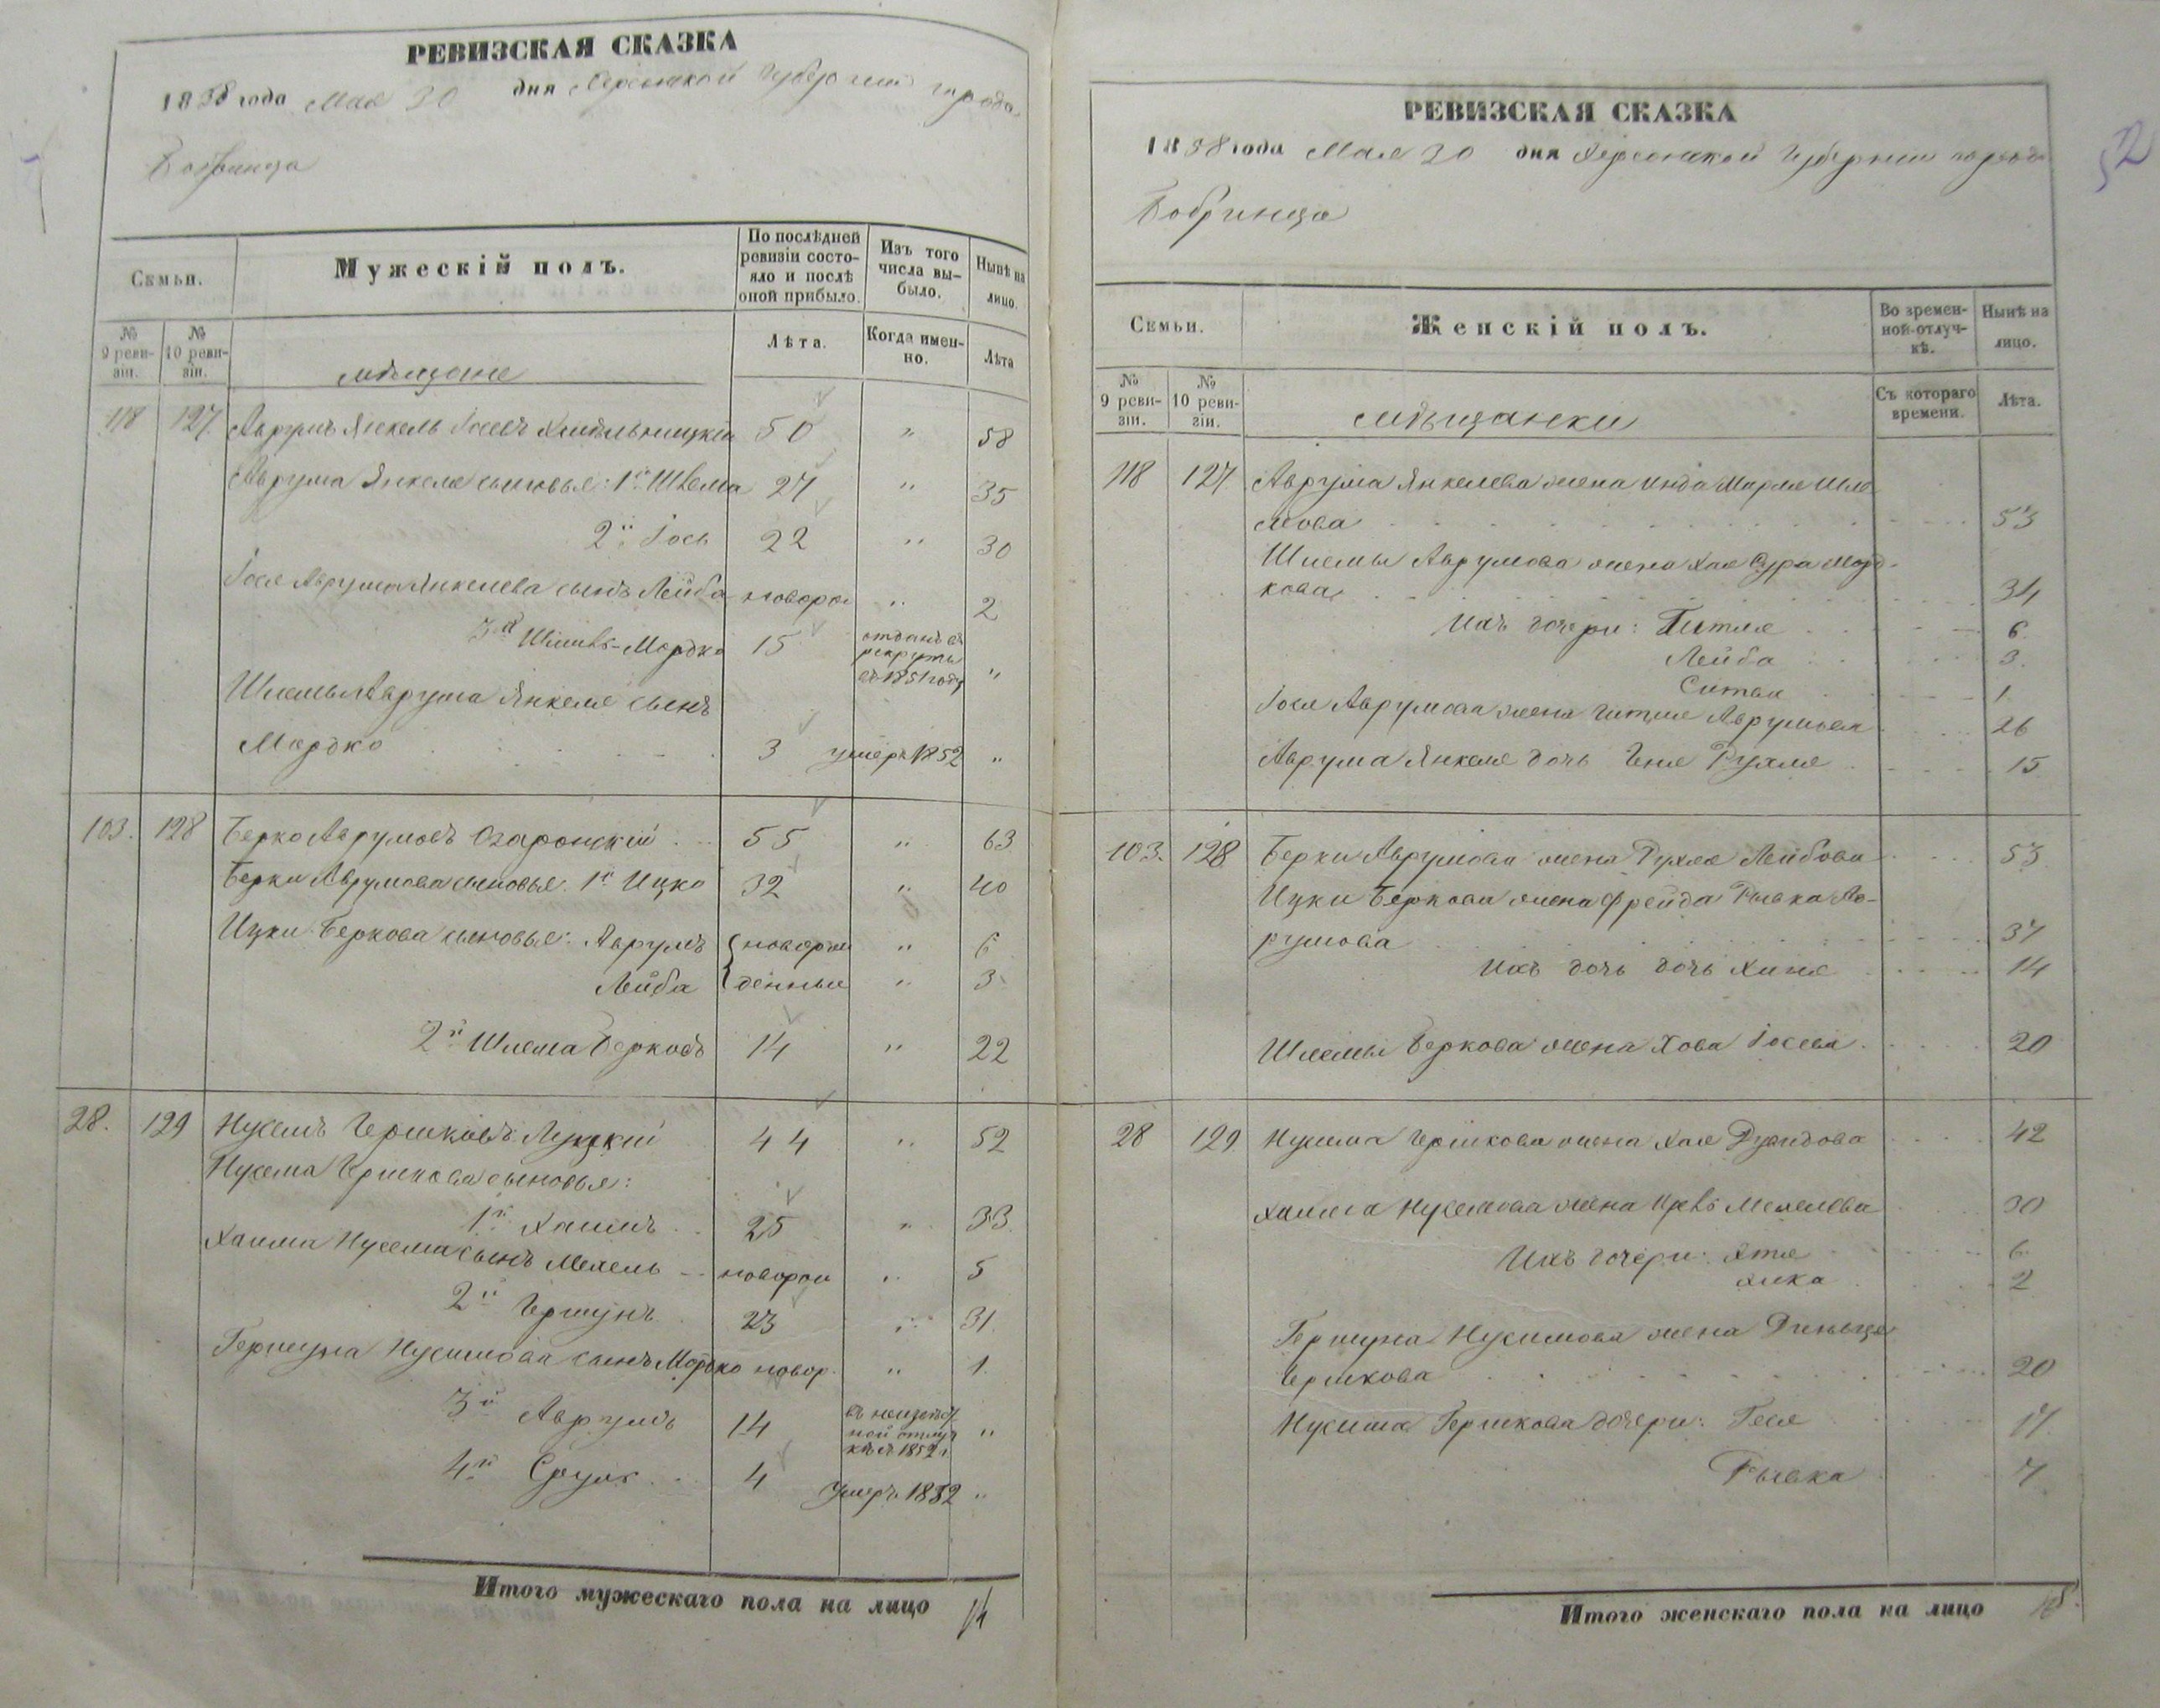 РЕВИЗСКАЯ СКАЗКА
1858 года Мая 30 дня Херсонской Губернии города
Бобринца
Семьи.
Мужескій полъ.
По послѣдней ревизіи состо-
яло и послѣ
оной прибыло.
Изъ того
числа вы-
было.
Нынѣ на
лицо.
№ 9 реви-
зіи.
№ 10 реви-
зіи.
мѣщане
Лѣта.
Когда имен-
но.
Лѣта
118 127 Аврумъ Янкель 50 " 58
Аврума Янкеля сыновья: 1й Шлема 27 " 35
2й Іось 22 " 30
Іося Аврума Янкелева сынъ Лейба новорож 2
3й Мордко 15 отданъ въ
рекруты
въ 1851 году "
Шлемы Аврума Янкеля сынъ
Мордко 3 умеръ 1852 "
103. 128 Берко Аврумовъ 55 " 63
Берки Аврумова сыновья. 1й Ицко 32 " 40
Ицки Беркова сыновья: Аврумъ новорож " 6
Лейба денные " 3
2й Шлема Берковъ 14 " 22
28. 129 Нусемъ Гершковъ Луцкій 44 " 52
Нусема Гершкова сыновья:
1й Хаимъ 25 " 33
Хаима Нусема сынъ Мехель новорож " 5
2й Гершунъ 23 " 31.
Гершуна Нусимова сынъ Мордко новор. " 1.
3й Аврумъ 14 въ неизвѣст
ной отлуч
кѣ съ 1852 г. "
4й Сруль 4 умеръ 1852 "
Итого мужескаго пола на лицо 14
РЕВИЗСКАЯ СКАЗКА
1858 года Мая 30 дня Херсонской Губерніи города
Бобринца
52
Семьи.
Женскій полъ.
Во времен-
ной отлуч-
кѣ.
Нынѣ на
лицо.
№
9 реви-
зіи.
№
10 реви-
зіи.
мѣщанки
Съ котораго
времени.
Лѣта.
118 127 Аврума Янкелева жена Шле
мова 53
Шлемы Аврумова жена Хая Сура Морд-
кова 34
Ихъ дочери: Гитля 6
Лейба 3.
1.
Іося Аврумова жена Гитля Аврумова 26
Аврума Янкеля дочь Геня Рухля 15
103. 128 Берки Аврумова жена Рухля Лейбова 53
Ицки Беркова жена Фрейда Рывка Ав-
румова 37
Ихъ дочь дочь Хиня 14
Шлемы Беркова жена Хова Іосева 20
28 129 Нусима Гершкова жена Хая Дувидова 42
Хаима Нусемова жена Мехелева 30
Ихъ дочери: 6
2
Гершуна Нусимова жена
Гершкова 20
Нусима Гершкова дочери: Геся 17.
Рывка 7
Итого женскаго пола на лицо